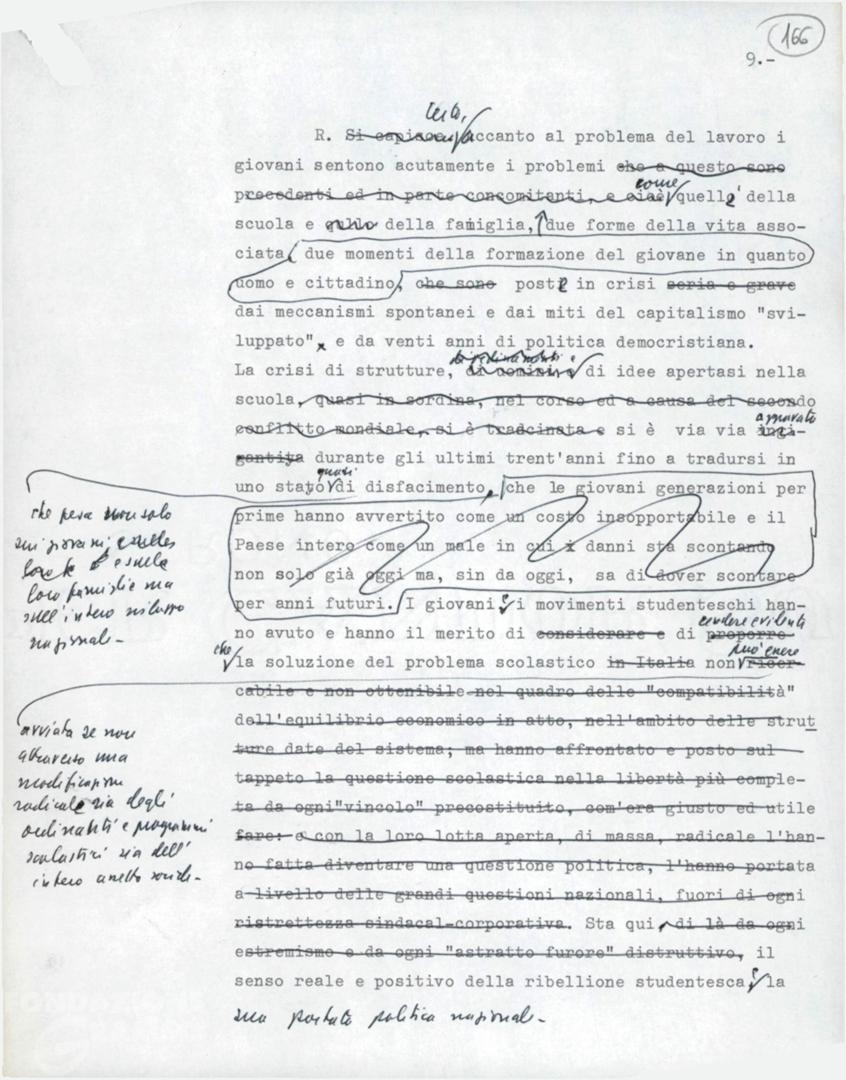 166
9.-
Certo,
R. Si capisce, accanto al problema del lavoro i
giovani sentono acutamente i problemi che a questo sono
come
precedenti ed in parte concomitanti, e cioè quelli della
scuola e della famiglia, due forme della vita asso-
ciata, due momenti della formazione del giovane in quanto
uomo e cittadino, che sono posti in crisi seria e grave
dai meccanismi spontanei e dai miti del capitalismo "svi-
luppato", e da venti anni di politica democristiana.
La crisi di strutture, di idee apertasi nella
scuola, quasi in sordina, nel corso ed a causa del secondo
aggravata
conflitto mondiale, si è trascinata e si è via via ingi-
gantita durante gli ultimi trent'anni fino a tradursi in
quasi
uno stato di disfacimento, che le giovani generazioni per
prime hanno avvertito come un costo insopportabile e il
Paese intero come un male in cui x danni sta scontando
non solo già oggi ma, sin da oggi, sa di dover scontare
per anni futuri. I giovani, i movimenti studenteschi han-
rendere evidente
no avuto e hanno il merito di considerare e di proporre
che
può essere
la soluzione del problema scolastico in Italia non ricer-
cabile e non ottenibile nel quadro delle "compatibilità"
dell'equilibrio economico in atto, nell'ambito delle strut
ture date del sistema; ma hanno affrontato e posto sul
tappeto la questione scolastica nella libertà più comple-
ta da ogni"vincolo" precostituito, com'era giusto ed utile
fare: e con la loro lotta aperta, di massa, radicale l'han-
no fatta diventare una questione politica, l'hanno portata
a livello delle grandi questioni nazionali, fuori di ogni
ristrettezza sindacal-corporativa. Sta qui, di là da ogni
estremismo e da ogni "astratto furore" distruttivo, il
senso reale e positivo della ribellione studentesca, la
sua portata politica nazionale.-
che pesa non solo
sui giovani e sulle
loro e sulla
loro famiglie ma
sull'intero sviluppo
nazionale.-
avviata se non
attraverso una
modificazione
radicale sia degli
ordinamenti e programmi
scolastici sia dell'
intero assetto sociale.-